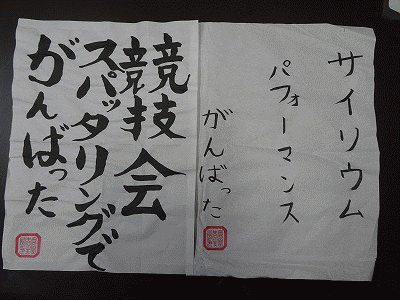 サイリウム
パフォーマンス
がんばった
競技会
スパッタリングで
がんばった